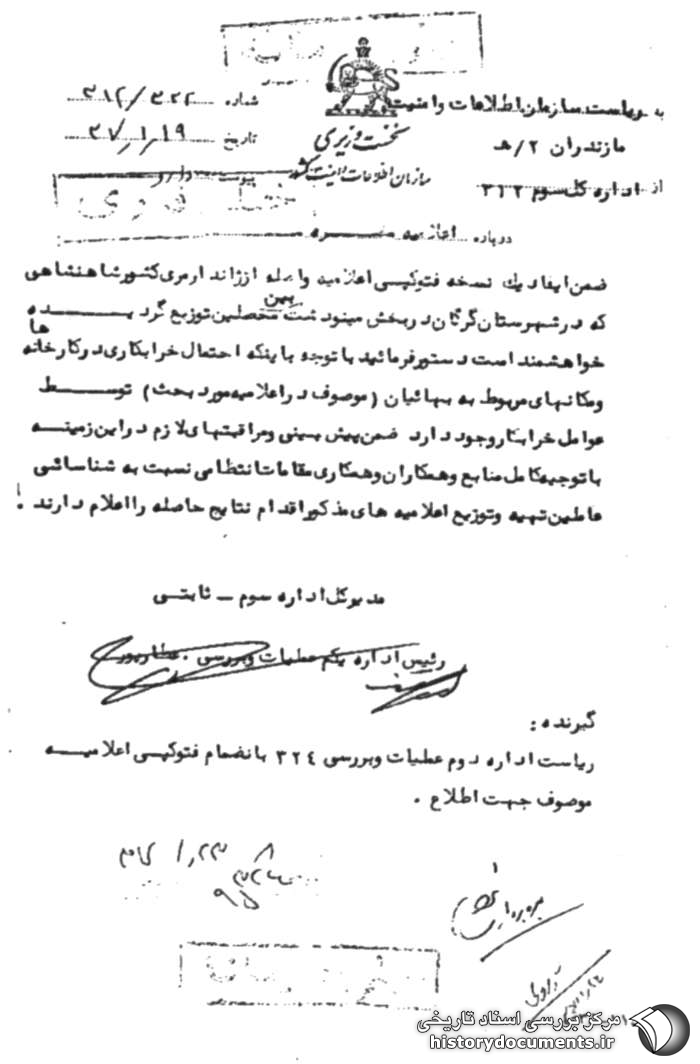 به ریاست سازمان اطلاعات و امنیت
مازندران ۲/هـ
از اداره کل سوم ۳۱۲
نخست وزیری
سازمان اطلاعات و امنیت کشور
شماره ۳۱۲/۳۲۲
تاریخ ۳۷/۱/۱۹
پیوست دارد
خیلی فوری
درباره اعلامیه مضره
ضمن ایفاد یک نسخه فتوکپی اعلامیه واصله از ژاندارمری کشور شاهنشاهی
که در شهرستان گرگان در بخش مینودشت بین محصلین توزیع گردیده
خواهشمند است دستور فرمائید با توجه باینکه احتمال خرابکاری در کارخانه ها
ومکانهای مربوط به بهائیان (موصوف در اعلامیه مورد بحث) توسط
عوامل خرابکار وجود دارد ضمن پیش بینی ومراقبتهای لازم در این زمینه
با توجیه کامل منابع وهمکاران وهمکاری مقامات انتظامی نسبت به شناسائی
عاملین تهیه وتوزیع اعلامیه های مذکور اقدام نتایج حاصله را اعلام دارند .
مدیرکل اداره سوم - ثابتی
رئیس اداره یکم عملیات وبررسی . عطارپور
گیرنده :
ریاست اداره دوم عملیات وبررسی ۳۲۴ بانضمام فتوکپی اعلامیه
موصوف جهت اطلاع .
مرکز بررسی اسناد تاریخی
historydocuments.ir